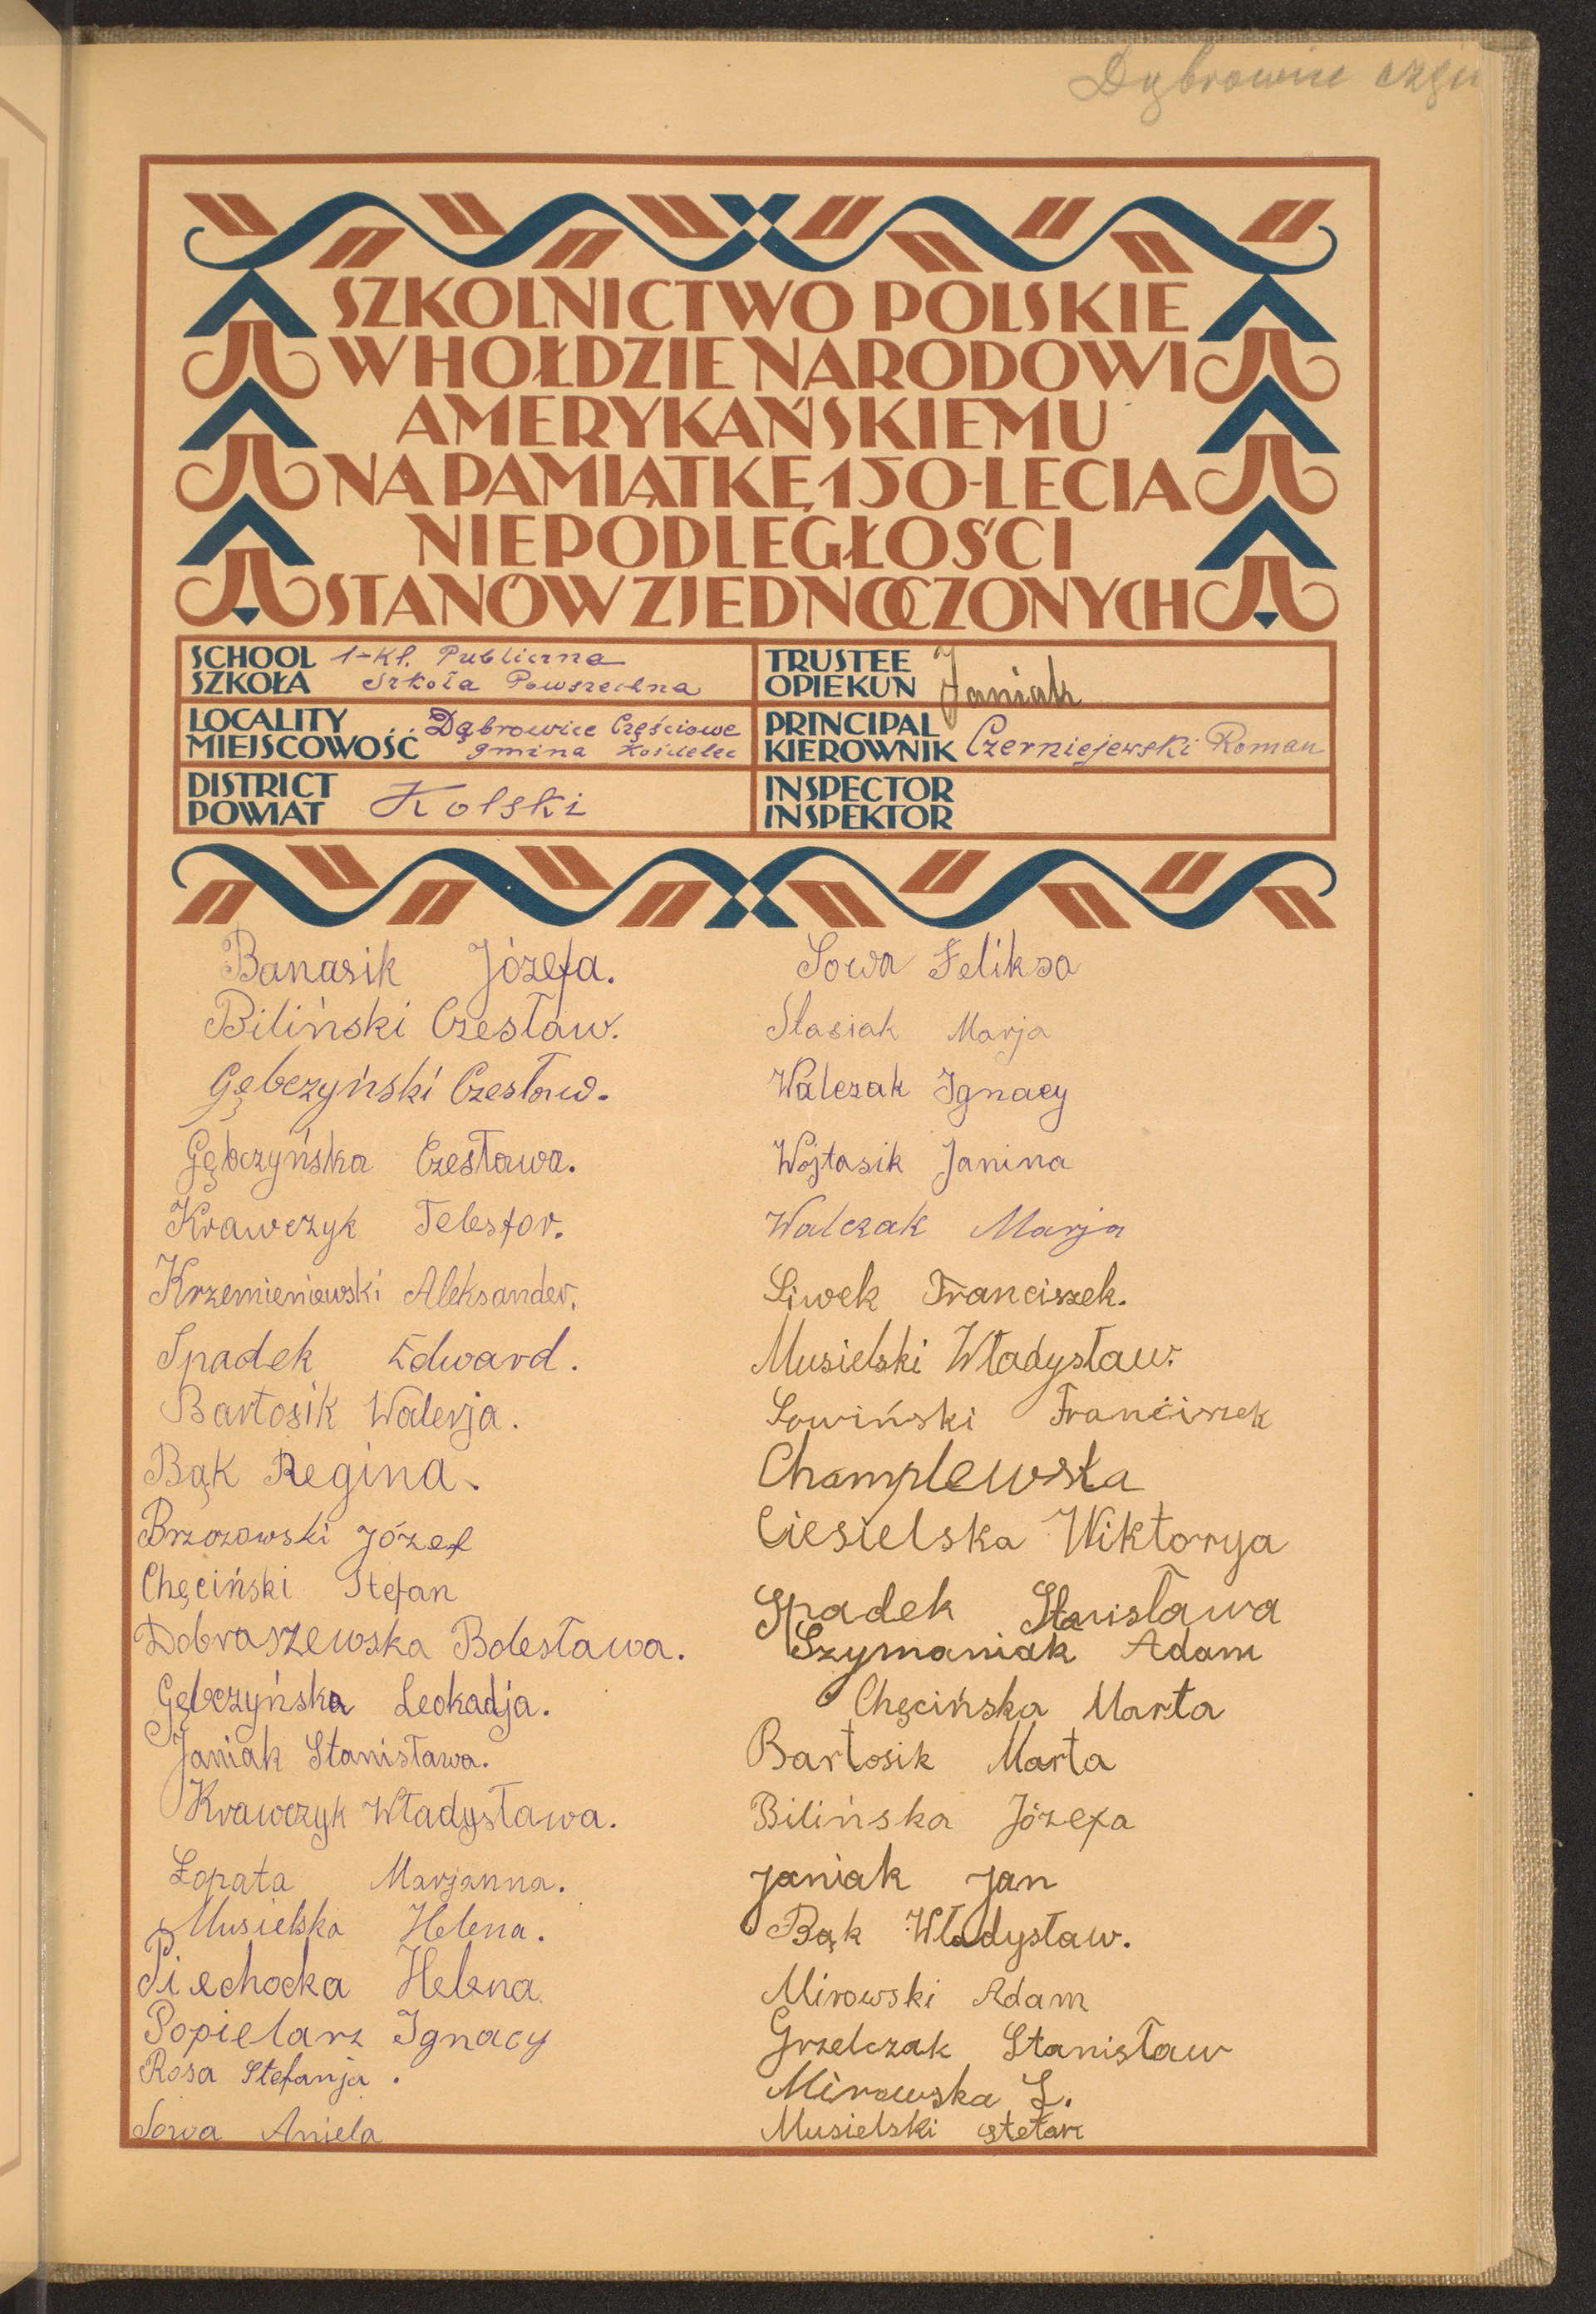 Dąbrowice częśc
SZKOLNICTWO POLSKIE
W HOŁDZIE NARODOWI
AMERYKAŃSKIEMU
NA PAMIĄTKĘ 150-LECIA
NIEPODLEGŁOŚCI
STANÓW ZJEDNOCZONYCH
SCHOOL
SZKOŁA
1-kl. Publiczna
Szkoła Powszechna
TRUSTEE
OPIEKUN
Janiak
LOCALITY
MIEJSCOWOŚĆ
Dąbrowice Częściowe
gmina Kościelec
PRINCIPAL
KIEROWNIK
Czerniejewski Roman
DISTRICT
POWIAT
Kolski
INSPECTOR
INSPEKTOR
Banasik Józefa.
Biliński Czesław.
Gębczyński Czesław.
Gębczyńska Czesława.
Krawczyk Telesfor.
Krzemieniewski Aleksander.
Spadek Edward.
Bartosik Walerja.
Bąk Regina.
Brzozowski Józef
Chęciński Stefan
Dobraszewska Bolesława.
Gębczyńska Leokadja.
Janiak Stanisława.
Krawczyk Władysława.
Łopata Marjanna.
Musielska Helena.
Piechocka Helena.
Popielarz Ignacy
Rosa Stefanja.
Sowa Aniela
Sowa Feliksa
Stasiak Marja
Walczak Ignacy
Wojtasik Janina
Walczak Marja
Siwek Franciszek.
Musielski Władysław.
Sowiński Franciszek
Champlewska
Ciesielska Wiktorya
Spadek Stanisława
Szymaniak Adam
Chęcińska Marta
Bartosik Marta
Bilińska Józefa
Janiak Jan
Bąk Władysław.
Mirowski Adam
Grzelczak Stanisław
Mirowska L.
Musielski Stefan